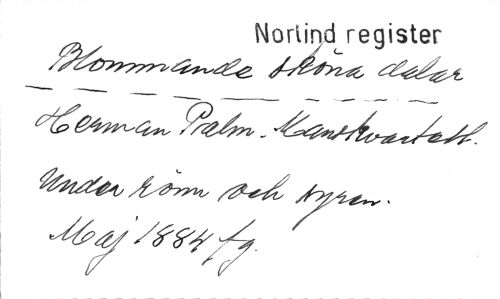 Norlind register
Blommande sköna dalar
Herman Palm. Manskvartett.
Under rönn och syren.
Maj 1884 fg.